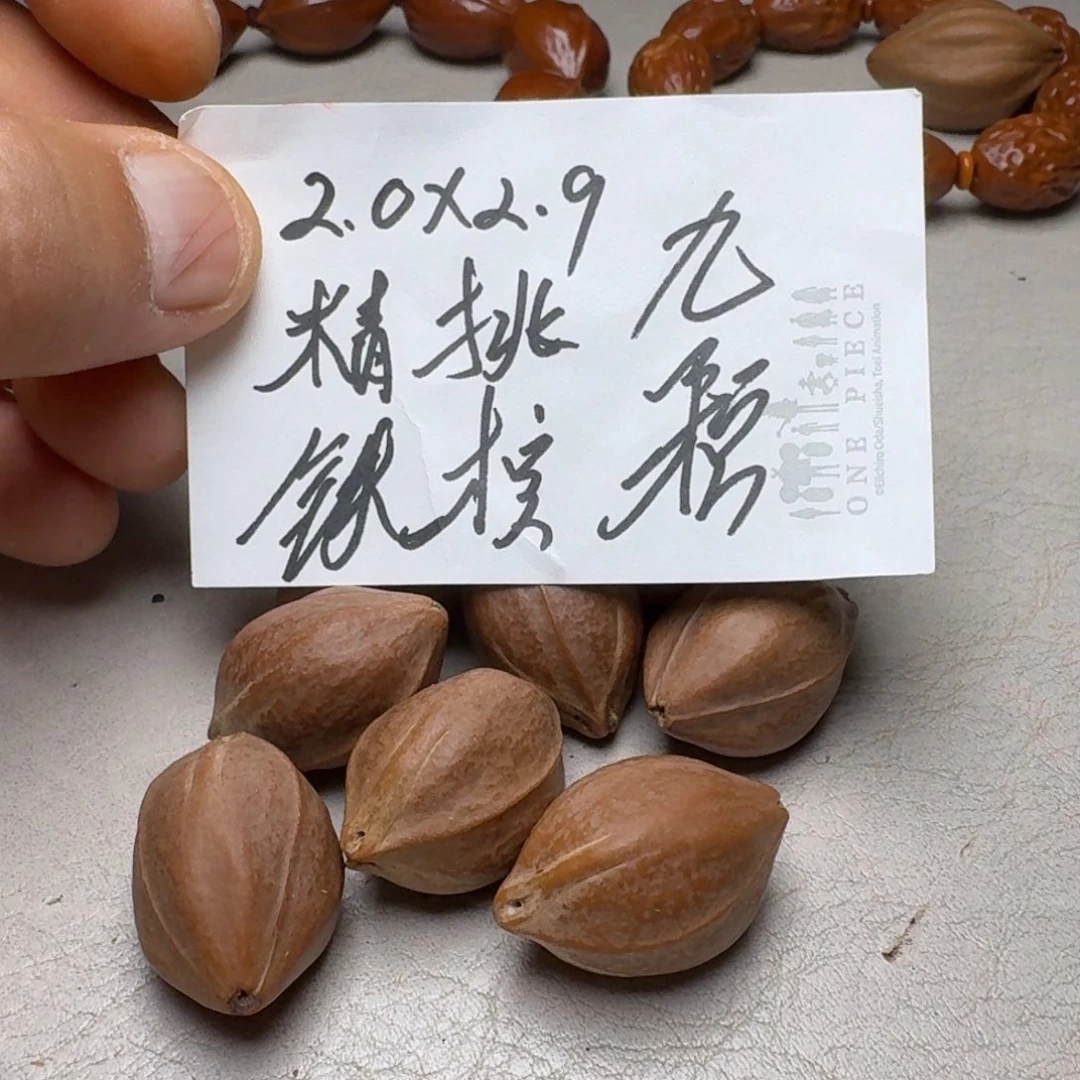 2.0X2.9
精挑
铁核
九
稞
ONE PIECE
©Eiichiro Oda/Shueisha, Toei Animation